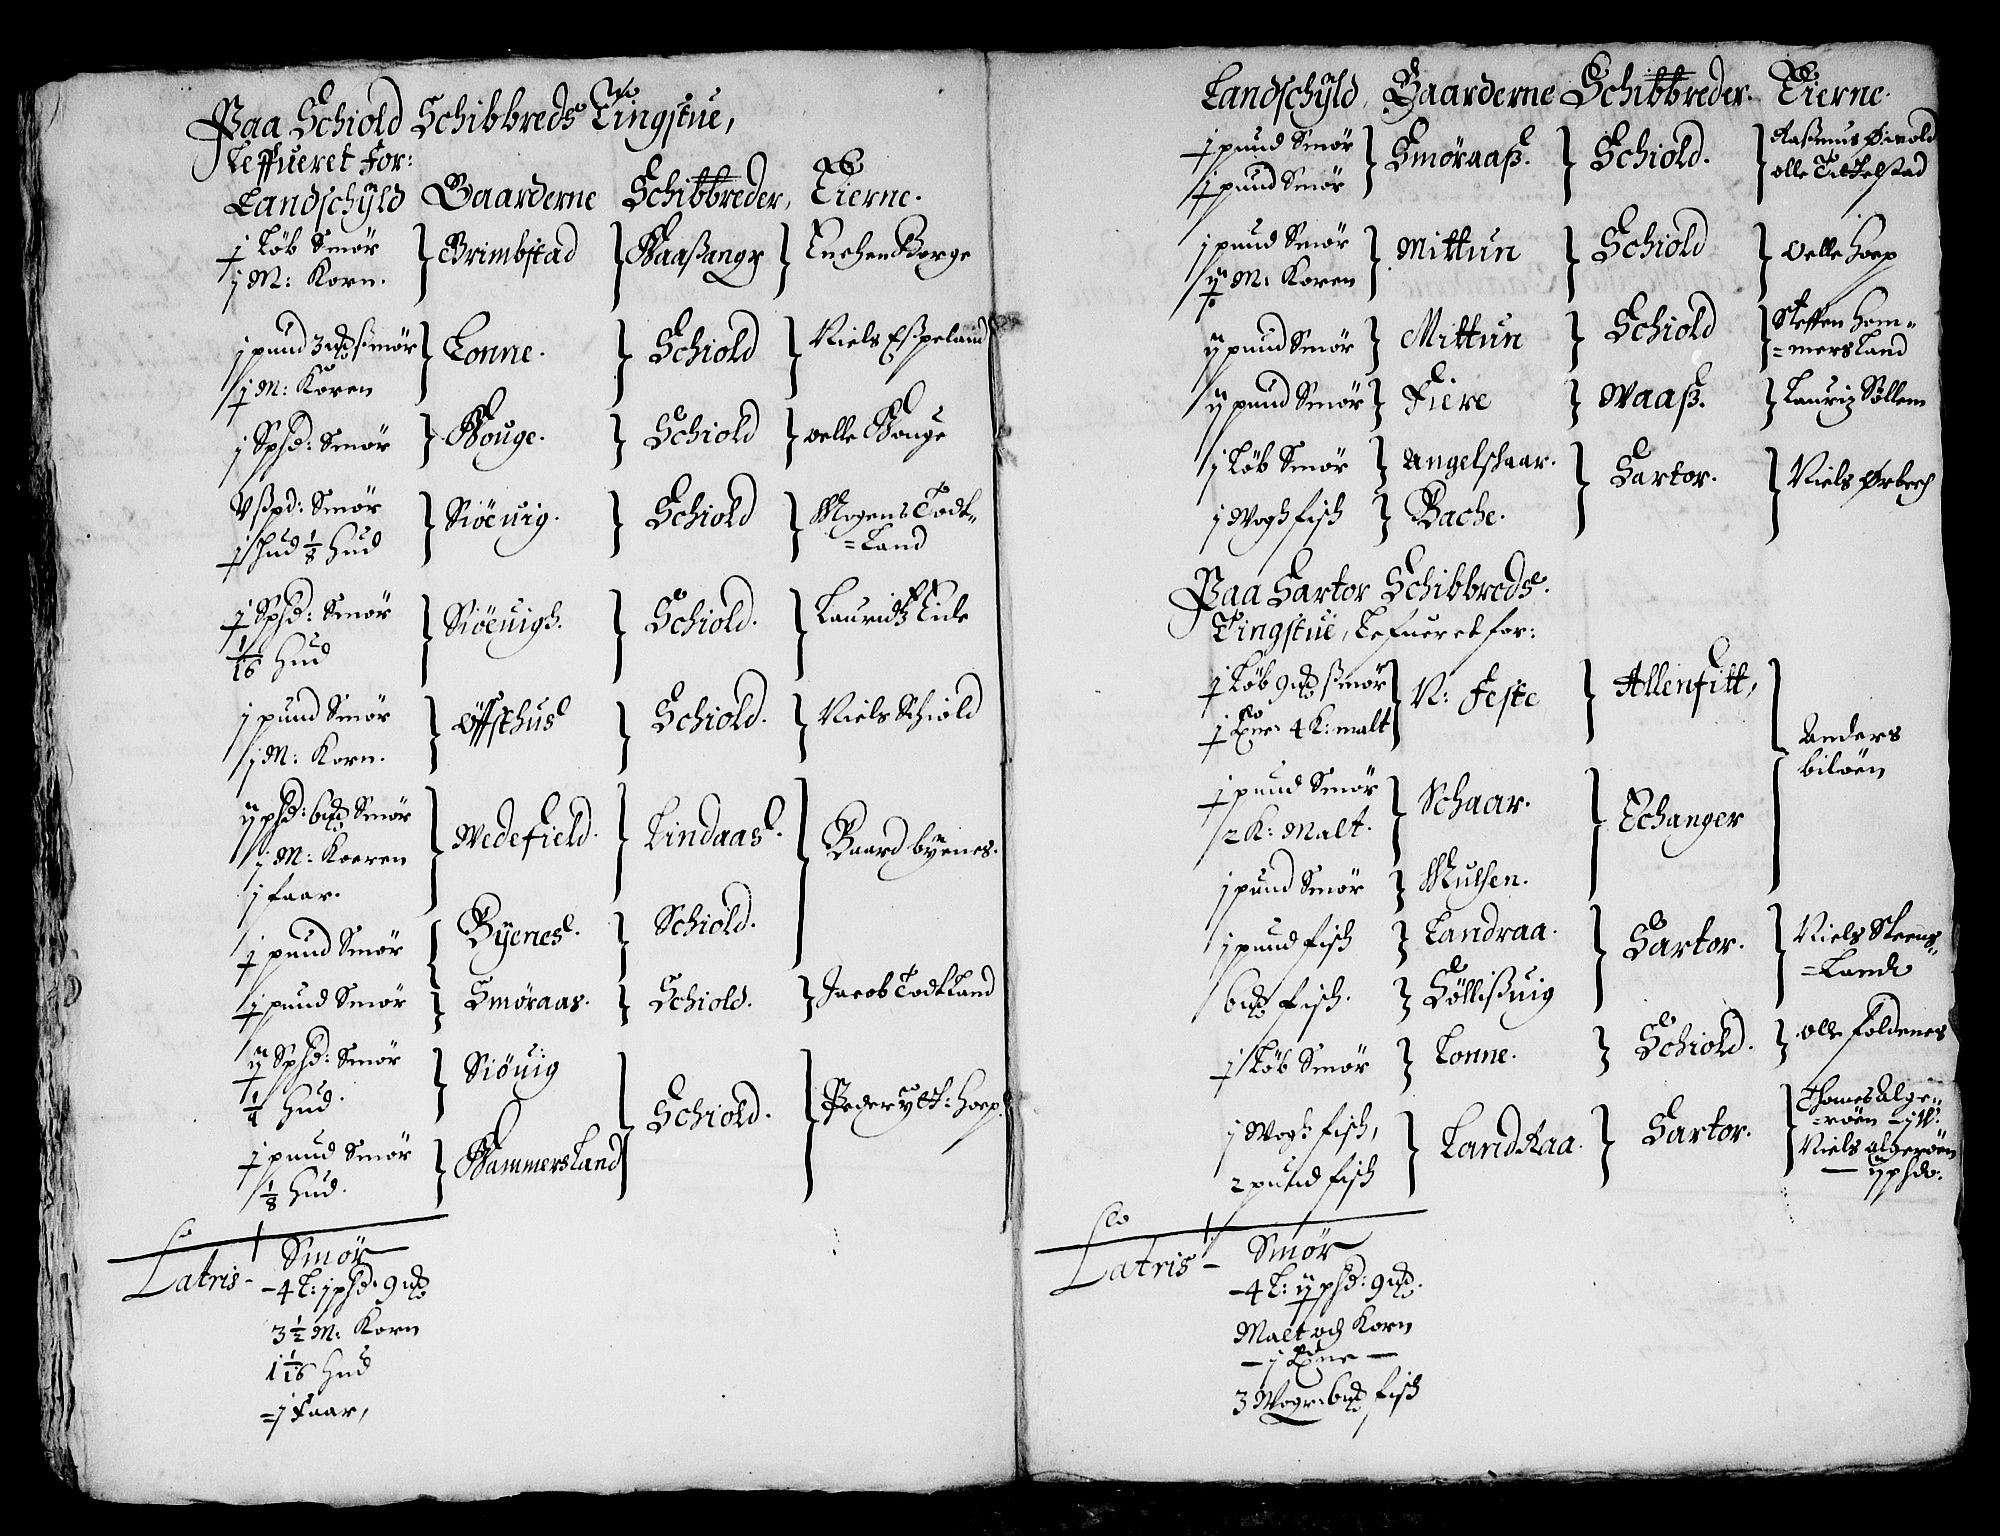 Paa Schiold Schibbreds Tingstue,
Leffueret For:
Landschyld Gaarderne Schibbreder, Eierne.
½ Løb Smør
j M: Korn. Grimbstad Haaßangr Euchen Borge
j pund 3 mk smør
½ M: Koren Lonne. Schiold Niels Eßpeland
j Spd: Smør Houge. Schiold oelle Houge
V ßpd: Smør
½ hud ⅛ hud Siöeuig. Schiold Mogens Todt-
=Land
½ Spd: Smør
1/16 hud Siöeuigh. Schiold. Lauridtz Eide
j pund Smør
j M: Korn. Øffsthus Schiold. Niels Schiold
ij pd: 6 mk Smør
j M: Koeren
j faar. Wedefield. Lindaas. Baard byenes.
½ pund Smør Byenes. Schiold.
½ pund Smør Smøraas. Schiold. Jacob Todtland
ij Spd: Smør
¼ hud. Siöuig
Schiold. Peder ytt: hoep
½ pund Smør
⅛ hud. Hammersland
Latris - Smør
- 4 L: j pd: 9 mk
3½ M: Korn
1 1/16 hud
= j Faar,
Landschyld Gaarderne Schibbreder. Eierne.
½ pund Smør
½ pund Smør Smøraaß. Schiold. Raßmus Øruold
olle Tittelstad
j pund Smør
ij M: Koren Mittun Schiold oelle hoep
ij pund Smør Mittun Schiold Steffen hom-
=mersland
ij pund Smør Fiere Waaß. Lauriz Söllem
j Løb Smør Angelschaar. Sartor. Niels Ørbech
j Wogh fisk Bache.
Paa Sartor Schibbreds.
Tingstue, Lefueret for:
½ Løb 9 mk smør
½ Løb 4 K: malt N: Feste Allenfitt,
Anders
biløen
½ pund Smør
2 K: Malt. Schaar. Echanger
j pund Smør Mulsen.
j pund fisk Landraa. Sartor. Niels Steens-
=Land
6 mk fisk. Söllißuig
½ Løb Smør Lonne. Schiold. olle foldenes
j Wogh fisk,
2 pund fisk LandRaa. Sartor. Thomes Alge-
=røen - j W:
Niels algerøen
- ij pd:
Latris - Smør
- 4 L: ij pd: 9 mk.
Malt och Korn
3 Wogr 6 mk fisk